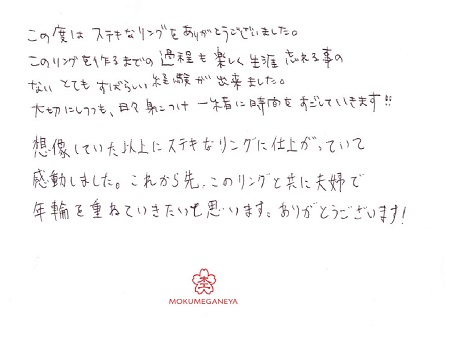 この度は ステキなリングをありがとうございました。
このリングを作るまでの過程も楽しく生涯忘れる事の
ない とてもすばらしい経験が出来ました。
大切にしつつも、日々身につけ 一緒に時間をすごしていきます!!
想像していた以上にステキなリングに仕上がっていて
感動しました。これから先、このリングと共に夫婦で
年輪を重ねていきたいと思います。ありがとうございます!
MOKUMEGANEYA